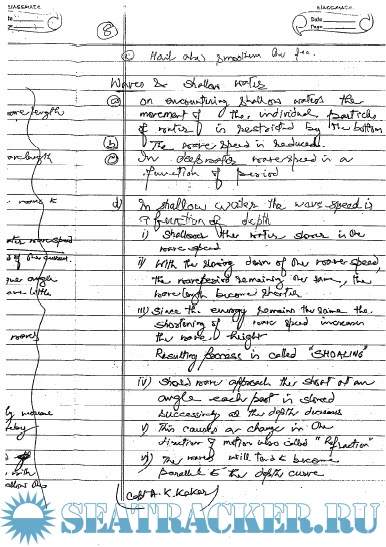 CLASSMATE
Date
Page
8
c) Hail also smoothen the sea
Waves & shallow water
a) on encountering shallow waters the
movement of the individual particle
of water is restricted by the bottom
b) The wave speed is reduced.
c) In deep water wave speed is a
function of period
d) In shallow water the wave speed is
a function of depth
i) Shallower the water slower is the
wave speed
ii) With the slowing down of the wave speed,
the wave period remaining the same, the
wave length become shorter
iii) Since the energy remains the same the
shortening of wave speed increases
the wave height
Resulting process is called "SHOALING"
iv) Should wave approach the shore at an
angle each part is slowed
successively as the depth decreases
v) This causes a change in the
direction of motion also called "Refraction"
vi) The waves will tend to become
parallel to the depth curve
(Capt A. K. Kakar)
wave length
wave length
waves &
water wave speed
of the current.
angle
are little
waves
by
with
SEATRACKER.RU